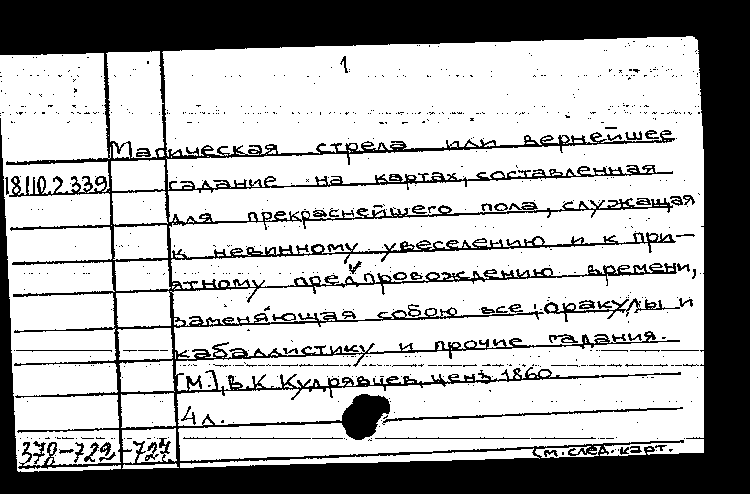 1
Магическая стрела или вернейшее
18110.2.339 гадание на картах, составленная
для прекраснейшего пола, служащая
к невинному увеселению и к при-
ятному предпровождению времени,
заменяющая собою все оракулы и
кабаллистику и прочие гадания.
[М.], В.К. Кудрявцев, ценз. 1860.
4 л.
370-729-727
См. след. карт.